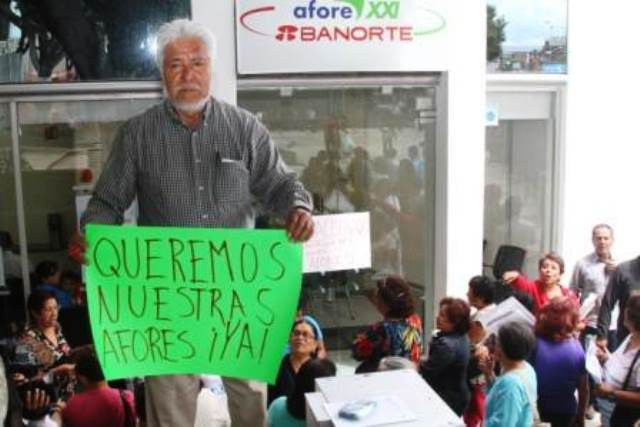 afore XXI
BANORTE
QUEREMOS
NUESTRAS
AFORES ¡YA!